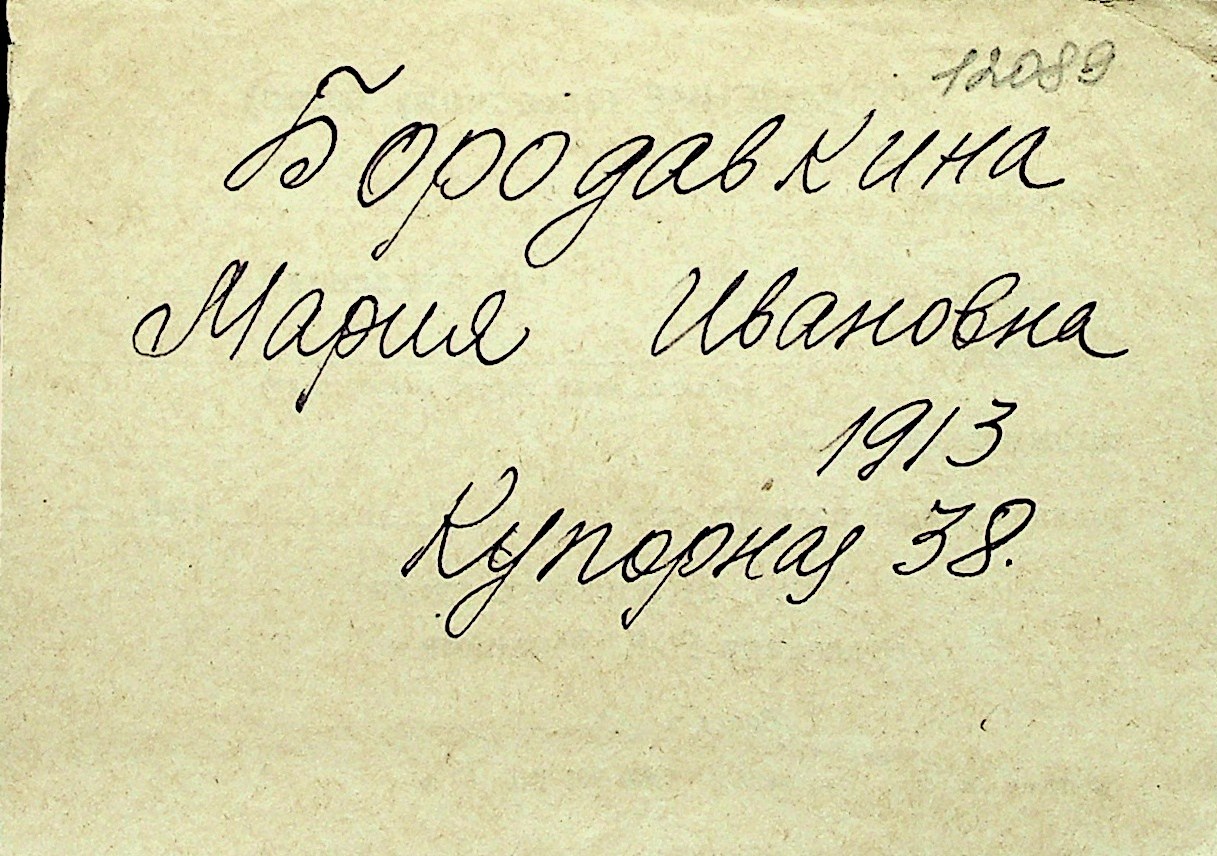 12089
Бородавкина
Мария Ивановна
1913
Купорная 38.